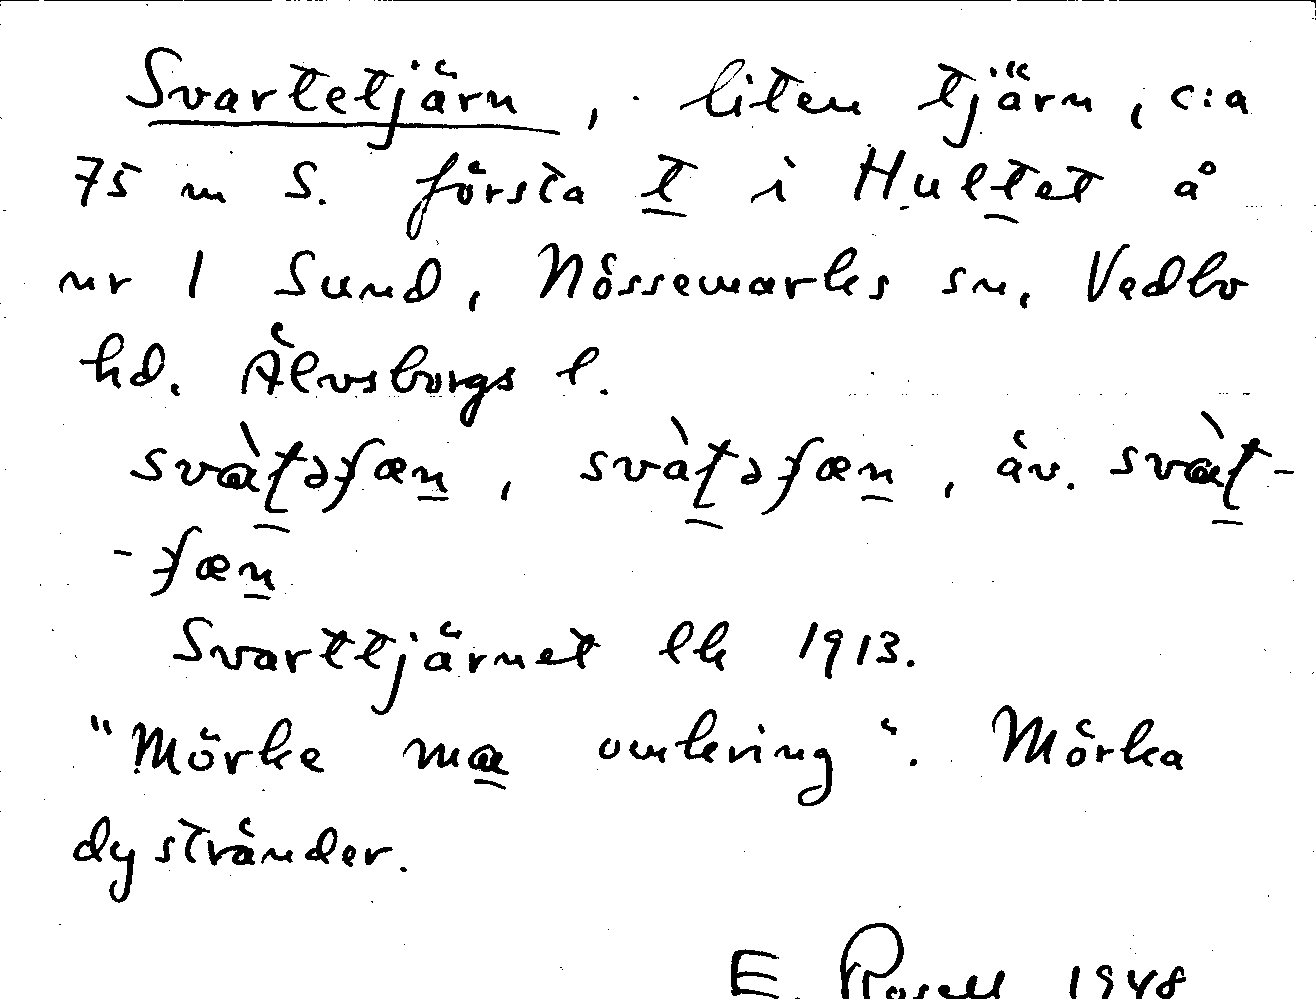 Svartetjärn, liten tjärn, c:a
75 m S. första t i Hultet å
nr 1 Sund, Nössemarks sn, Vedbo
hd. Älvsborgs l.
äv.
Svarttjärnet ek 1913.
"Mörke ma omkring". Mörka
dystränder.
E. Rosell 1948